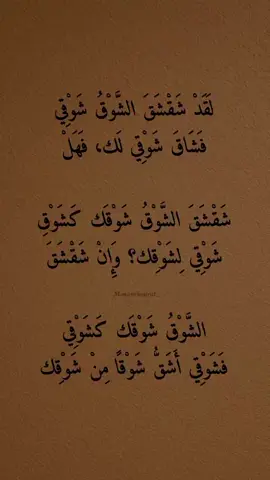 لَقَدْ شَقْشَقَ الشَّوْقُ شَوْقِي
فَشَاقَ شَوْقِي لَك، فَهَلْ
شَقْشَقَ الشَّوْقُ شَوْقَك كَشَوْقِ
شَوْقِي لِشَوْقِك؟ وَإِنْ شَقْشَقَ
الشَّوْقُ شَوْقَك كَشَوْقِي
فَشَوْقِي أَشَقُّ شَوْقًا مِنْ شَوْقِك